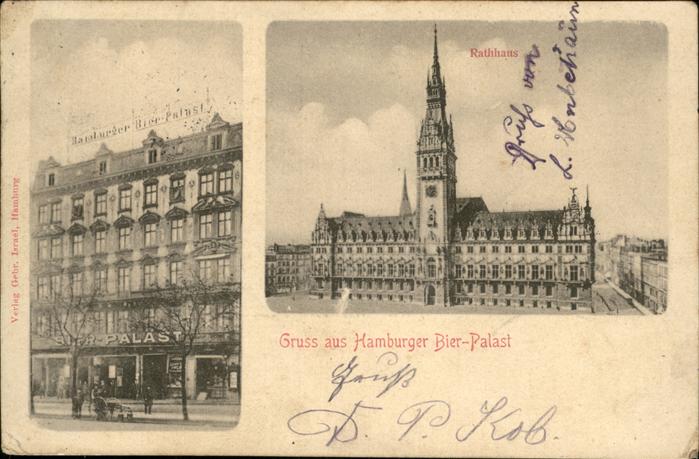 Hamburger Bier-Palast
BIER-PALAST
Verlag Gebr. Israel, Hamburg
Rathhaus
Gruß von
L.
Gruss aus Hamburger Bier-Palast
Gruß
P. Kob.